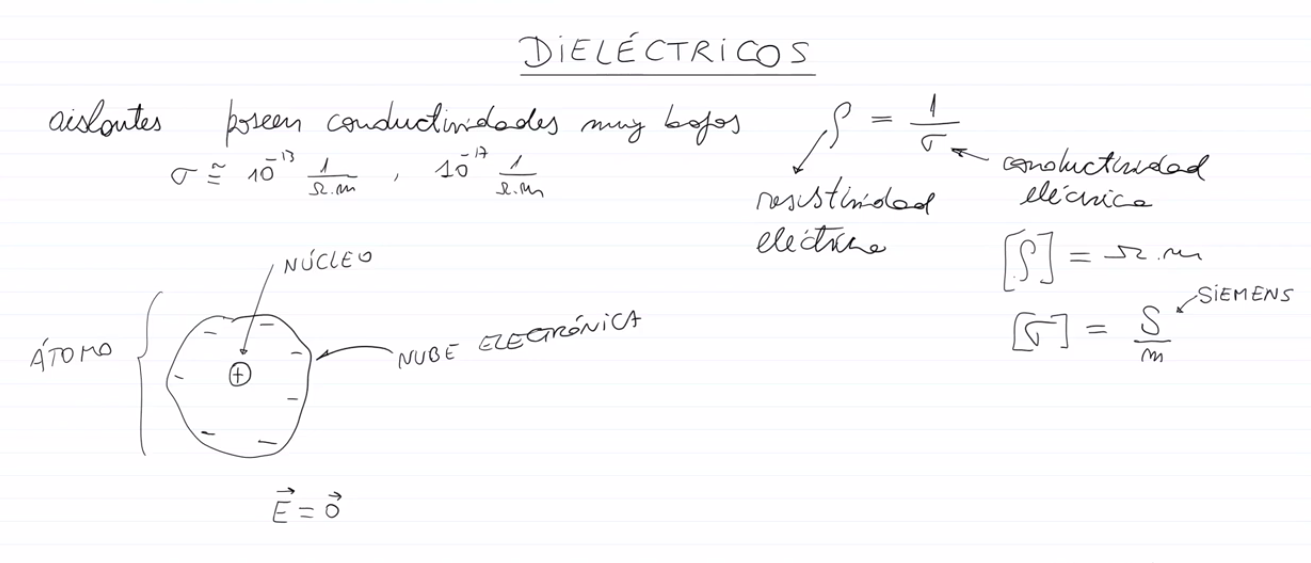 DIELÉCTRICOS
aislantes poseen conductividades muy bajas ρ = 1/σ
σ ≅ 10⁻¹³ 1/Ω.m , 10⁻¹⁷ 1/Ω.m
conductividad eléctrica
resistividad eléctrica
[ρ] = Ω.m
NÚCLEO
SIEMENS
[σ] = S/m
ÁTOMO
NUBE ELECTRÓNICA
+
E⃗ = 0⃗